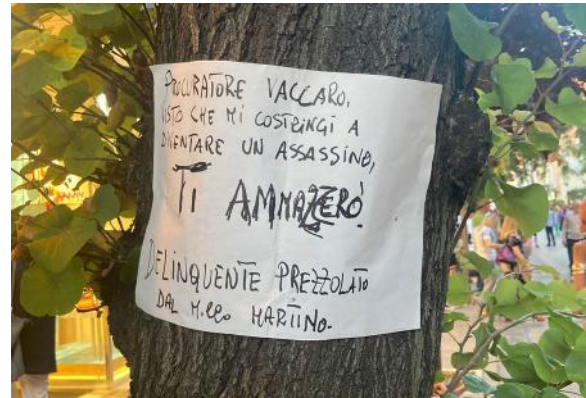 PROCURATORE VACCARO,
VISTO CHE MI COSTRINGI A
DIVENTARE UN ASSASSINO,
TI AMMAZZERÒ!
DELINQUENTE PREZZOLATO
DAL M.llo MARTINO.